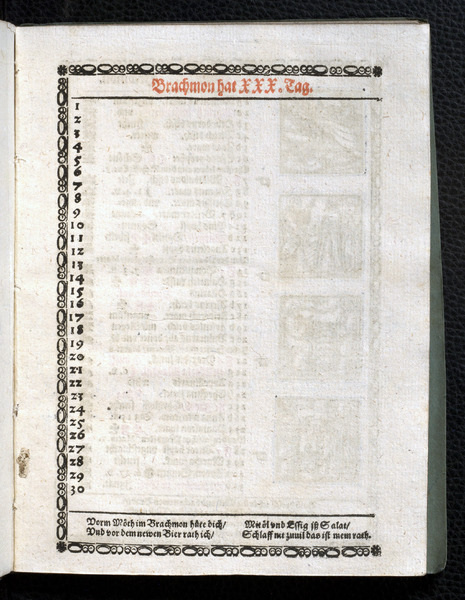 Brachmon hat XXX. Tag.
1
2
3
4
5
6
7
8
9
10
11
12
13
14
15
16
17
18
19
20
21
22
23
24
25
26
27
28
29
30
Vorm Möth im Brachmon hüte dich/
Vnd vor dem newen Bier rath ich/
Mit öl vnd Essig iß Salat/
Schlaff nit zuuil das ist mein rath.